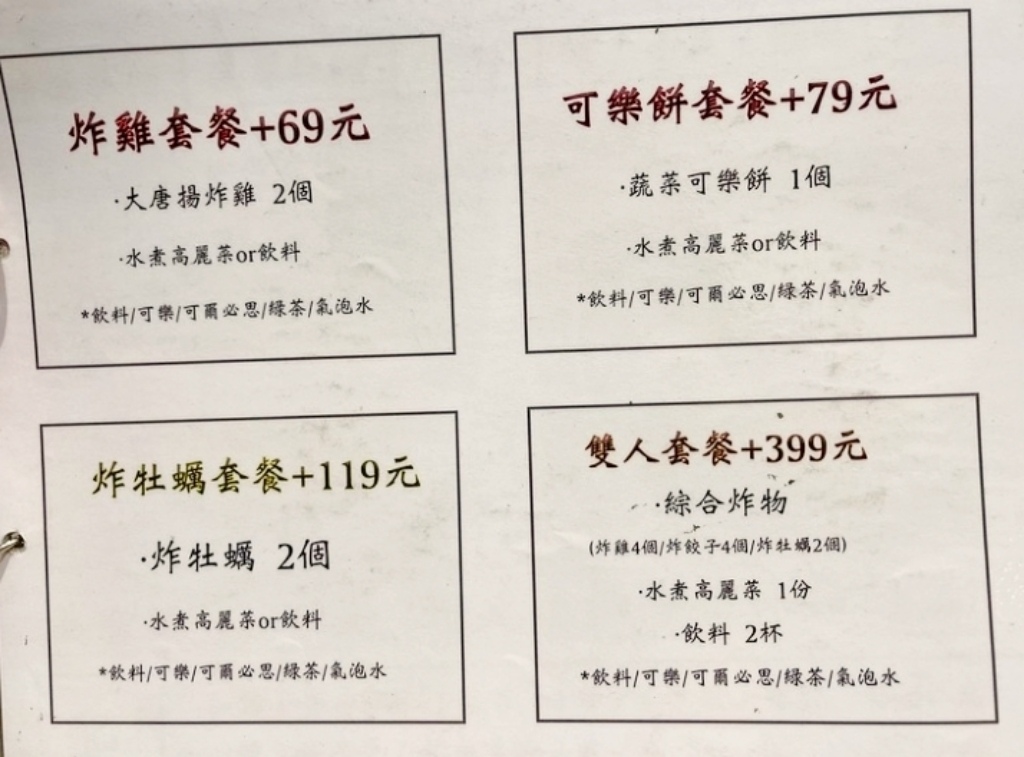 炸雞套餐+69元
·大唐揚炸雞 2個
·水煮高麗菜or飲料
*飲料/可樂/可爾必思/綠茶/氣泡水
可樂餅套餐+79元
·蔬菜可樂餅 1個
·水煮高麗菜or飲料
*飲料/可樂/可爾必思/綠茶/氣泡水
炸牡蠣套餐+119元
·炸牡蠣 2個
·水煮高麗菜or飲料
*飲料/可樂/可爾必思/綠茶/氣泡水
雙人套餐+399元
·綜合炸物
(炸雞4個/炸餃子4個/炸牡蠣2個)
·水煮高麗菜 1份
·飲料 2杯
*飲料/可樂/可爾必思/綠茶/氣泡水